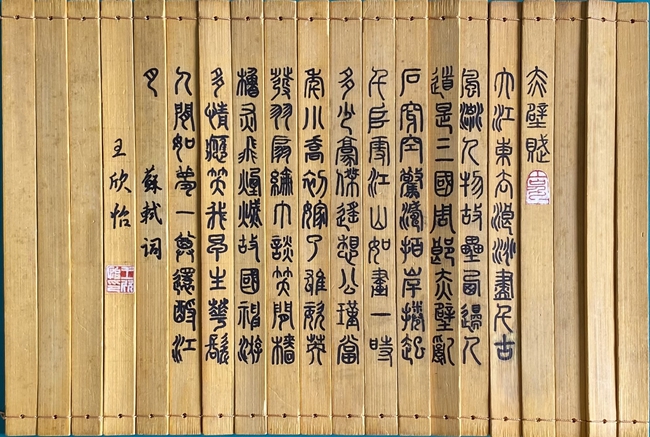 赤壁賦
大江東去浪淘盡千古
風流人物故壘西邊人
道是三國周郎赤壁亂
石穿空驚濤拍岸捲起
千堆雪江山如畫一時
多少豪傑遙想公瑾當
年小喬初嫁了雄姿英
發羽扇綸巾談笑間檣
櫓灰飛煙滅故國神游
多情應笑我早生華髮
人間如夢一尊還酹江
月 蘇軾词
王欣怡